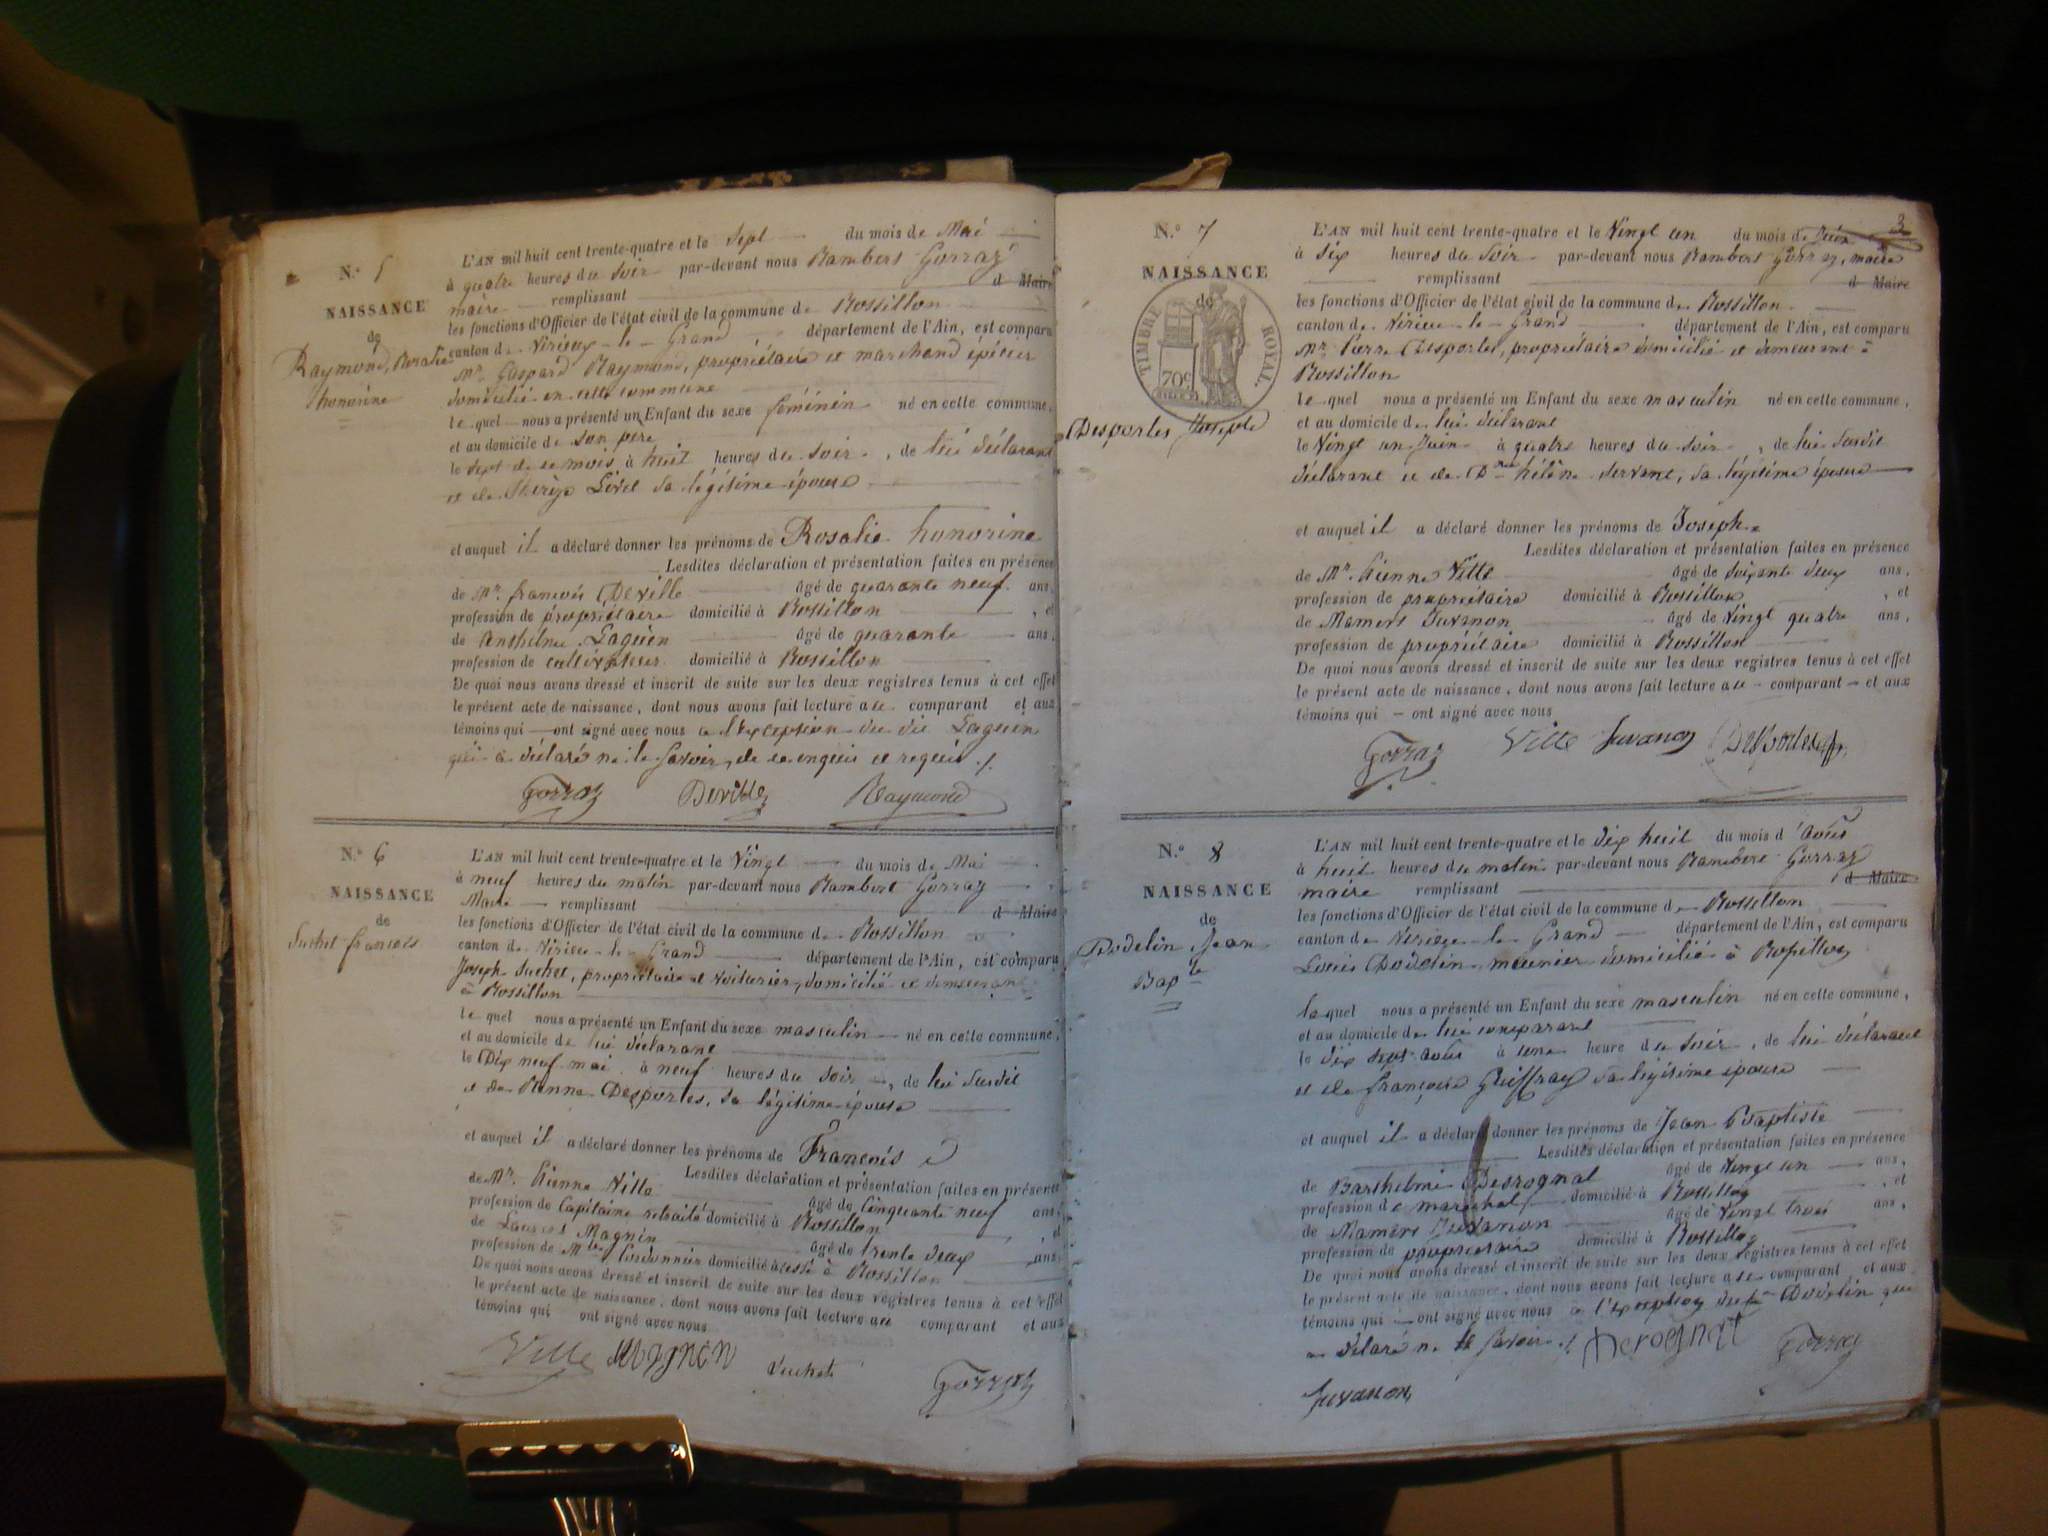 N.º 5
NAISSANCE
de
Raymond, Rosalie
honorine
L'AN mil huit cent trente-quatre et le Sept du mois de Mai
à quatre heures du Soir par-devant nous Rambert Gorraz
maire remplissant d Maire
les fonctions d'Officier de l'état civil de la commune de Rossillon
canton de Virieux-le-Grand département de l'Ain, est comparu
Mr. Gaspard Raymond, propriétaire et marchand épicier
domicilié en cette commune
le quel nous a présenté un Enfant du sexe féminin né en cette commune,
et au domicile de son père
le Sept de ce mois à huit heures du Soir, de lui déclarant
et de Thérèze Livet sa légitime épouse
et auquel il a déclaré donner les prénoms de Rosalie honorine
Lesdites déclaration et présentation faites en présence
de Mr. françois Deville âgé de quarante neuf ans,
profession de propriétaire domicilié à Rossillon, et
de Anthelme Laguin âgé de quarante ans,
profession de cultivateur domicilié à Rossillon
De quoi nous avons dressé et inscrit de suite sur les deux registres tenus à cet effet
le présent acte de naissance, dont nous avons fait lecture a ce comparant et aux
témoins qui ont signé avec nous a l'exception du dit Laguin
qui a déclaré ne le savoir, de ce enquis et requis ./.
Gorraz Deville Raymond
N.º 6
NAISSANCE
de
Suchet françois
L'AN mil huit cent trente-quatre et le Vingt du mois de Mai
à neuf heures du matin par-devant nous Rambert Gorraz,
Maire remplissant d Maire
les fonctions d'Officier de l'état civil de la commune de Rossillon
canton de Virieu-le-Grand département de l'Ain, est comparu
Joseph Suchet, propriétaire et voiturier, domicilié et demeurant
à Rossillon
le quel nous a présenté un Enfant du sexe masculin né en cette commune,
et au domicile de lui déclarant
le Dix neuf mai à neuf heures du soir, de lui susdit
et de Anne Desportes, sa légitime épouse
et auquel il a déclaré donner les prénoms de François
Lesdites déclaration et présentation faites en présence
de Mr. Etienne Ville âgé de Cinquante neuf ans,
profession de Capitaine retraité domicilié à Rossillon, et
de Laurent Magnin âgé de trente deux ans,
profession de Cordonnier domicilié à Rossillon
De quoi nous avons dressé et inscrit de suite sur les deux registres tenus à cet effet
le présent acte de naissance, dont nous avons fait lecture au comparant et aux
témoins qui ont signé avec nous
Ville Magnin Suchet Gorraz
3
N.º 7
NAISSANCE
de
TIMBRE ROYAL.
70c
Desportes Joseph
L'AN mil huit cent trente-quatre et le Vingt un du mois de Juin
à six heures du Soir par-devant nous Rambert Gorraz, maire
remplissant d Maire
les fonctions d'Officier de l'état civil de la commune de Rossillon
canton de Virieu-le-Grand département de l'Ain, est comparu
Mr. Pierre Desportes, propriétaire domicilié et demeurant à
Rossillon
le quel nous a présenté un Enfant du sexe masculin né en cette commune,
et au domicile de lui déclarant
le Vingt un Juin à quatre heures du Soir, de lui susdit
déclarant et de Dme hélène Servant, sa légitime épouse
et auquel il a déclaré donner les prénoms de Joseph
Lesdites déclaration et présentation faites en présence
de Mr. Etienne Ville âgé de soixante deux ans,
profession de propriétaire domicilié à Rossillon, et
de Mamers Juvanon âgé de Vingt quatre ans,
profession de propriétaire domicilié à Rossillon
De quoi nous avons dressé et inscrit de suite sur les deux registres tenus à cet effet
le présent acte de naissance, dont nous avons fait lecture a ce comparant et aux
témoins qui ont signé avec nous
Gorraz Ville Juvanon Desportes
N.º 8
NAISSANCE
de
Dodelin Jean
Bapte
L'AN mil huit cent trente-quatre et le dix huit du mois d'Août
à huit heures du matin par-devant nous Rambert Gorraz
maire remplissant d Maire
les fonctions d'Officier de l'état civil de la commune de Rossillon
canton de Virieu-le-Grand département de l'Ain, est comparu
Louis Dodelin, meunier domicilié à Rossillon
le quel nous a présenté un Enfant du sexe masculin né en cette commune,
et au domicile de lui comparant
le dix sept août à une heure du soir, de lui déclarant
et de françoise Guiffray sa légitime épouse
et auquel il a déclaré donner les prénoms de Jean Baptiste
Lesdites déclaration et présentation faites en présence
de Barthelmi Desrognat âgé de Vingt un ans,
profession de maréchal domicilié à Rossillon, et
de Mamers Juvanon âgé de Vingt trois ans,
profession de propriétaire domicilié à Rossillon
De quoi nous avons dressé et inscrit de suite sur les deux registres tenus à cet effet
le présent acte de naissance, dont nous avons fait lecture a ce comparant et aux
témoins qui ont signé avec nous a l'exception dudit Dodelin qui
a déclaré ne le savoir ./. Derognat Gorraz
Juvanon